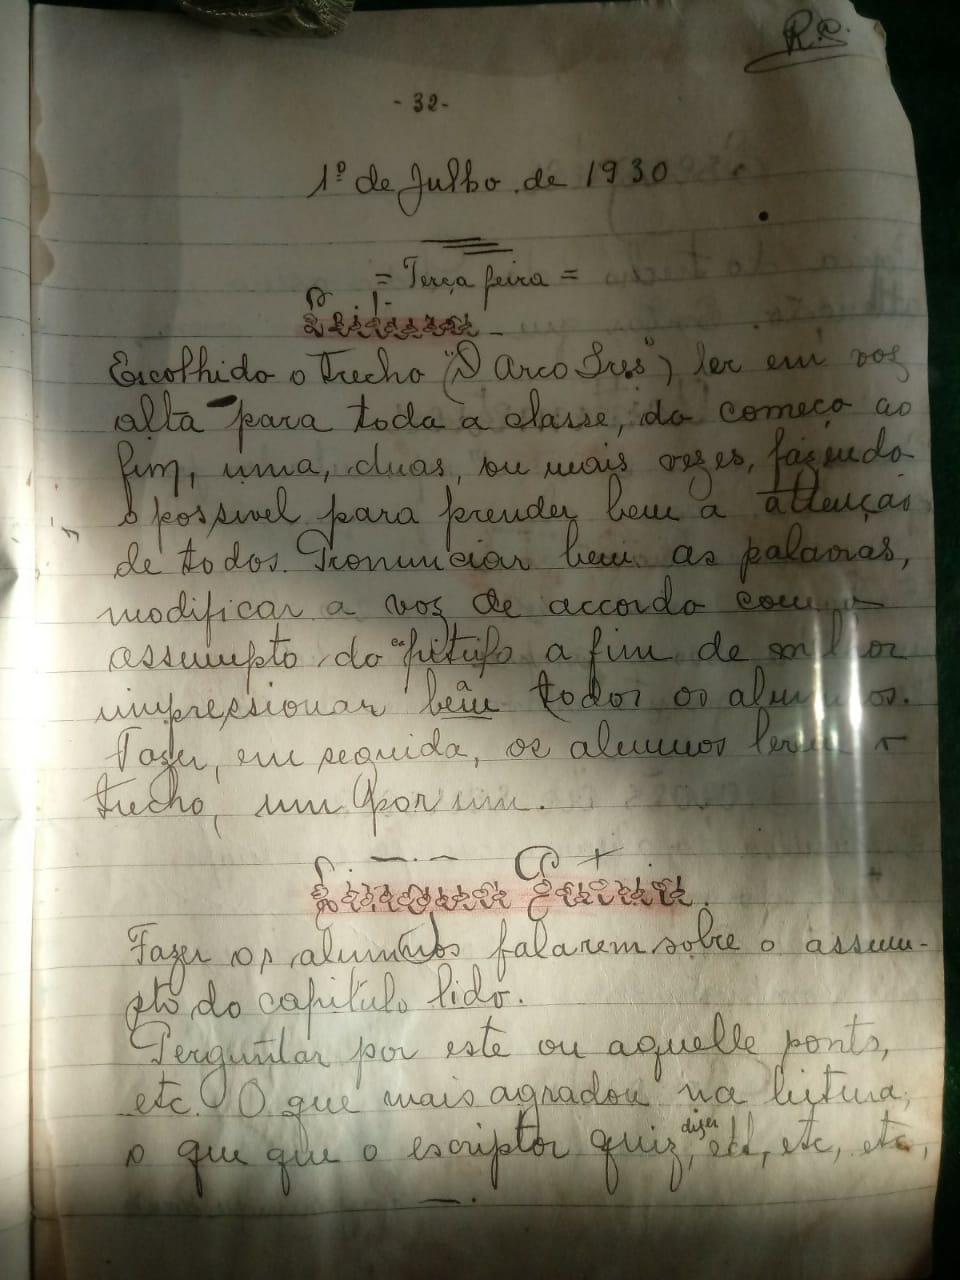 R.C.
- 32 -
1º de Julho de 1930
= Terça feira =
Leitura -
Escolhido o trecho ("O Arco Iris") ler em voz
alta para toda a classe, do começo ao
fim, uma, duas, ou mais vezes, fazendo
o possivel para prender bem a attenção
de todos. Pronunciar bem as palavras,
modificar a voz de accordo com o
assumpto do capitulo a fim de melhor
impressionar bem todos os alumnos.
Fazer, em seguida, os alumnos lerem o
trecho, um por um.
Linguagem
Fazer os alumnos falarem sobre o assum-
pto do capitulo lido.
Perguntar por este ou aquelle ponto,
etc. O que mais agradou na leitura,
o que que o escriptor quiz dizer, etc, etc, etc,